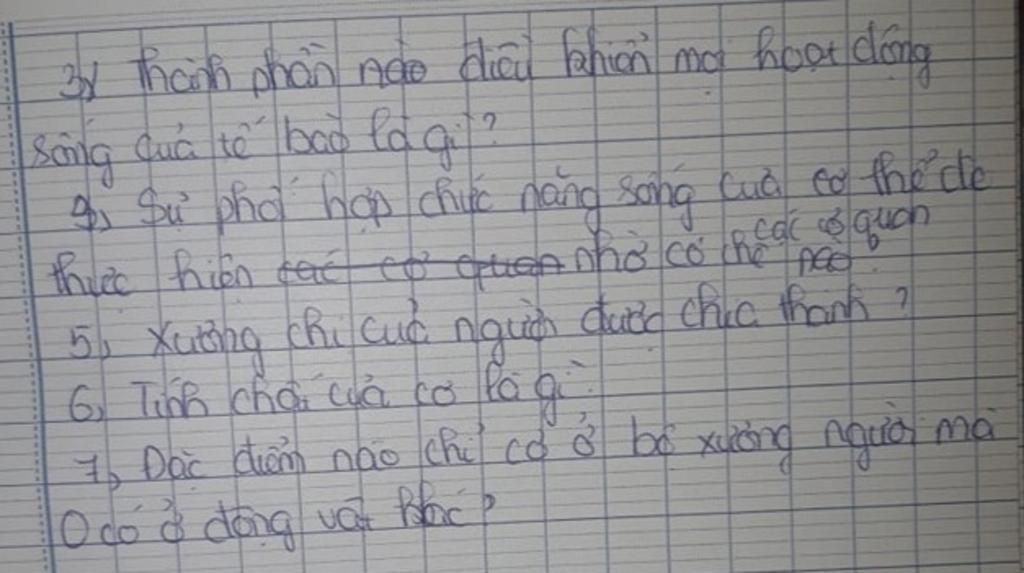 3, Thành phần nào điều khiển mọi hoạt động
sống của tế bào là gì?
4, Sự phối hợp chức năng sống của cơ thể đc
các cơ quan
thực hiện các cơ quan nhờ có thể nào
5, Xương chi của người được chia thành?
6, Tính chất của cơ là gì?
7, Đặc điểm nào chỉ có ở bộ xương người mà
0 có ở động vật khác?